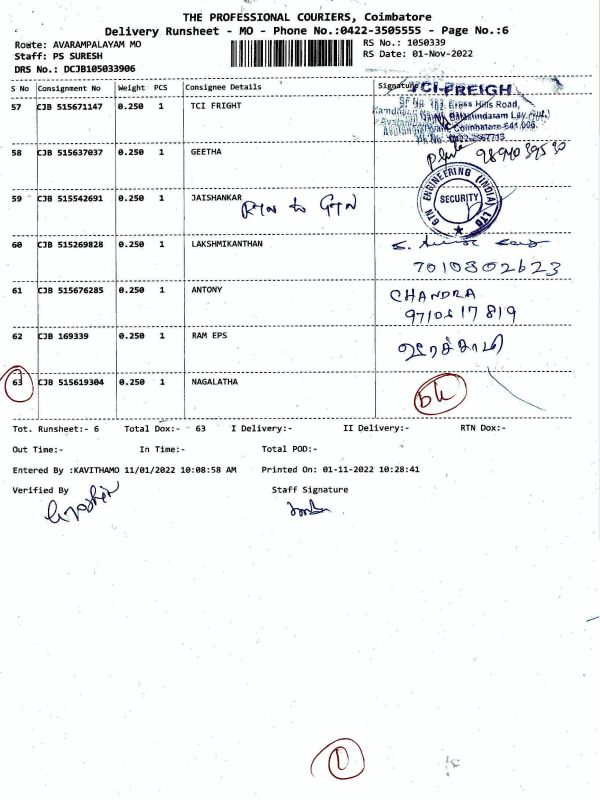 THE PROFESSIONAL COURIERS, Coimbatore
Delivery Runsheet - MO - Phone No.:0422-3505555 - Page No.:6
Route: AVARAMPALAYAM MO
RS No.: 1050339
Staff: PS SURESH
RS Date: 01-Nov-2022
DRS No.: DCJB105033906
S No Consignment No Weight PCS Consignee Details Signature
57 CJB 515671147 0.250 1 TCI FRIGHT
TCI-FREIGH
Cross Hills Road,
Coimbatore-641 006.
58 CJB 515637037 0.250 1 GEETHA
59 CJB 515542691 0.250 1 JAISHANKAR
RTN to GTN
GTN ENGINEERING (INDIA) LTD
SECURITY
60 CJB 515269828 0.250 1 LAKSHMIKANTHAN
7010302623
61 CJB 515676285 0.250 1 ANTONY
CHANDRA
62 CJB 169339 0.250 1 RAM EPS
63 CJB 515619304 0.250 1 NAGALATHA
Tot. Runsheet:- 6 Total Dox:- 63 I Delivery:- II Delivery:- RTN Dox:-
Out Time:- In Time:- Total POD:-
Entered By :KAVITHAMO 11/01/2022 10:08:58 AM Printed On: 01-11-2022 10:28:41
Verified By Staff Signature
1